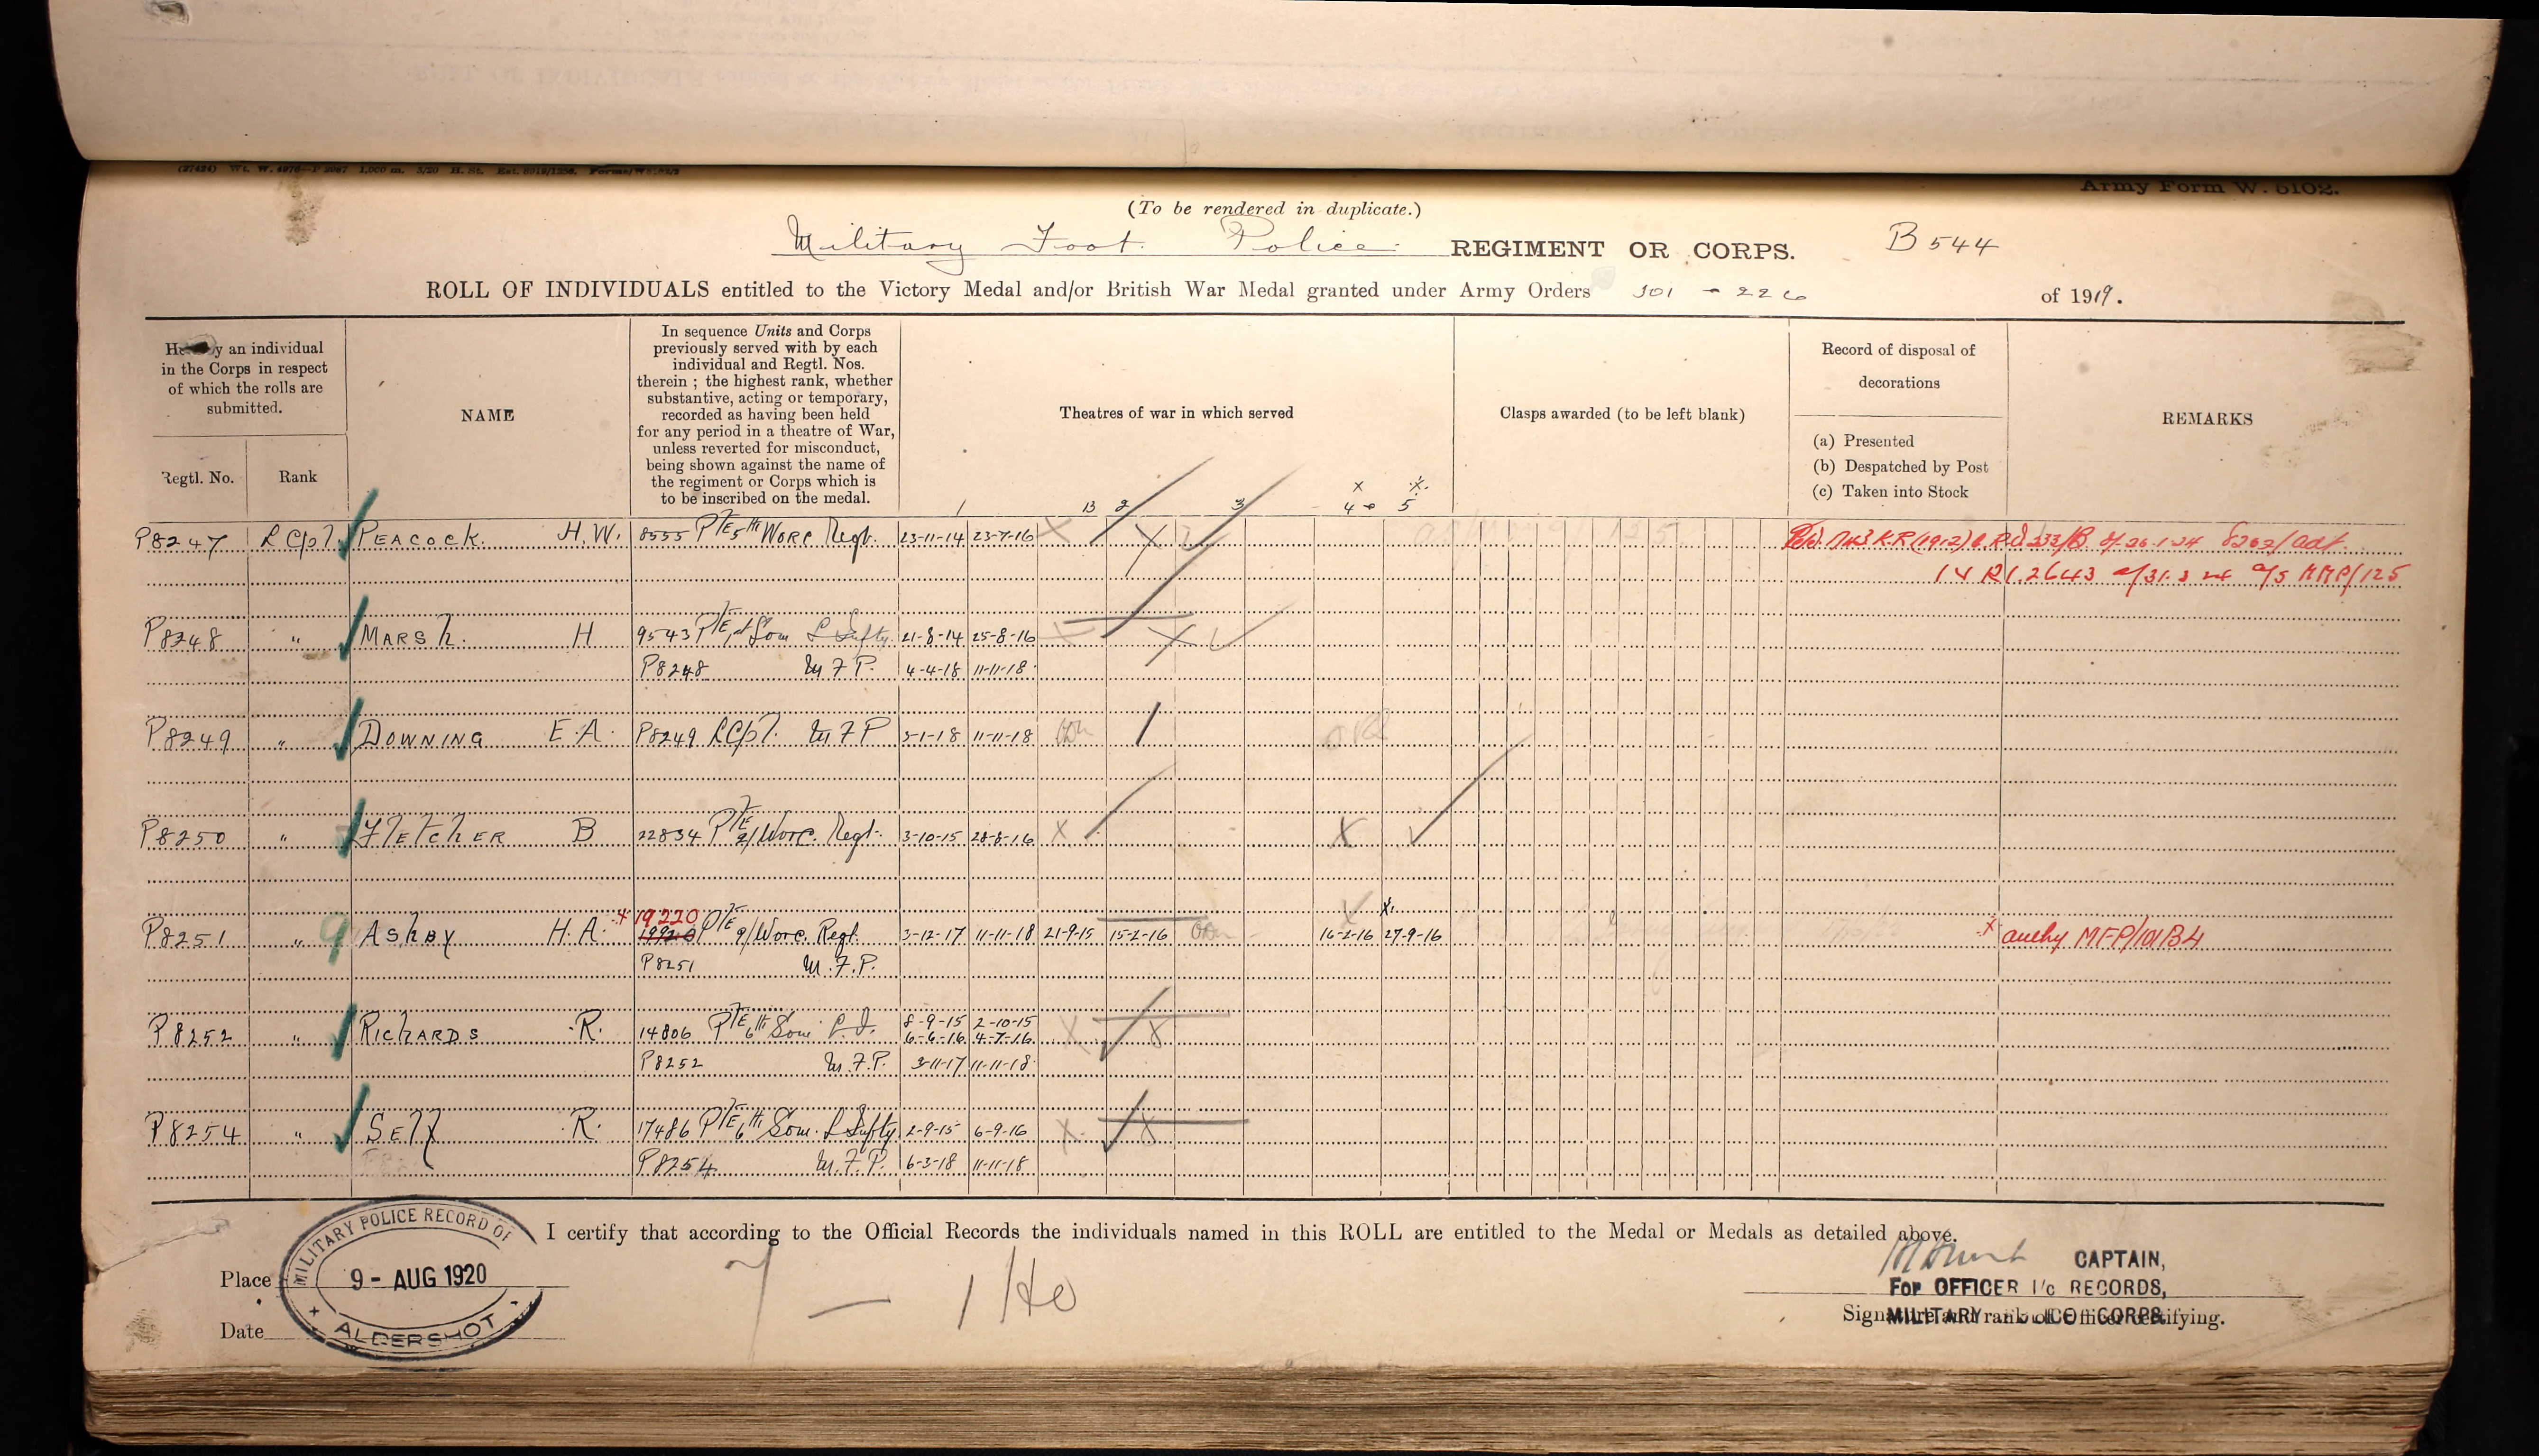 (27424) Wt. W. 4976—P 2087 1,000 m. 3/20 H. St. Est. 8919/1256. Forms/W5102/2
Army Form W. 5102.
(To be rendered in duplicate.)
Military Foot Police REGIMENT OR CORPS. B 544
ROLL OF INDIVIDUALS entitled to the Victory Medal and/or British War Medal granted under Army Orders 301 - 226 of 1919.
y an individual
in the Corps in respect
of which the rolls are
submitted.
Regtl. No. Rank
NAME
In sequence Units and Corps
previously served with by each
individual and Regtl. Nos.
therein ; the highest rank, whether
substantive, acting or temporary,
recorded as having been held
for any period in a theatre of War,
unless reverted for misconduct,
being shown against the name of
the regiment or Corps which is
to be inscribed on the medal.
Theatres of war in which served
1 B 2 3 x 4 x 5
Clasps awarded (to be left blank)
Record of disposal of
decorations
(a) Presented
(b) Despatched by Post
(c) Taken into Stock
REMARKS
P8247 L Cpl. PEACOCK. H.W. 8555 PTE 5th WORC Regt. 23-11-14 23-7-16 X X 743 KR (1912) 233/B 26.1.24 8202/adt.
14 R1.2643 31.3.24 MMP/125
P8248 " MARSh. H 9543 PTE 1st Som L Infty. 21-8-14 25-8-16 X X
P8248 M F P. 4-4-18 11-11-18
P8249 " DOWNING E.A. P8249 LCpl. M F P 3-1-18 11-11-18
P8250 " FLETChER B 22834 PTE 2/Worc. Regt. 3-10-15 28-8-16 X X
P8251 " AshBy H.A. x 19220 19920 PTE 9/Worc. Regt. 3-12-17 11-11-18 21-9-15 15-2-16 16-2-16 x 27-9-16 x authy MFP/101B4
P8251 M.F.P.
P8252 " RIChARDS R. 14806 PTE 6th Som. L.I. 8-9-15 2-10-15 X
6-6-16 4-7-16
P8252 M.F.P. 3-11-17 11-11-18
P8254 " SELY R. 17486 PTE 6th Som. L Infty 2-9-15 6-9-16 X
P8254 M.F.P. 6-3-18 11-11-18
I certify that according to the Official Records the individuals named in this ROLL are entitled to the Medal or Medals as detailed above.
MILITARY POLICE RECORD OF
Place 9 - AUG 1920
ALDERSHOT
Date
7 — 1
CAPTAIN,
For OFFICER I/c RECORDS,
MILITARY POLICE CORPS.
Signature and rank of Officer certifying.